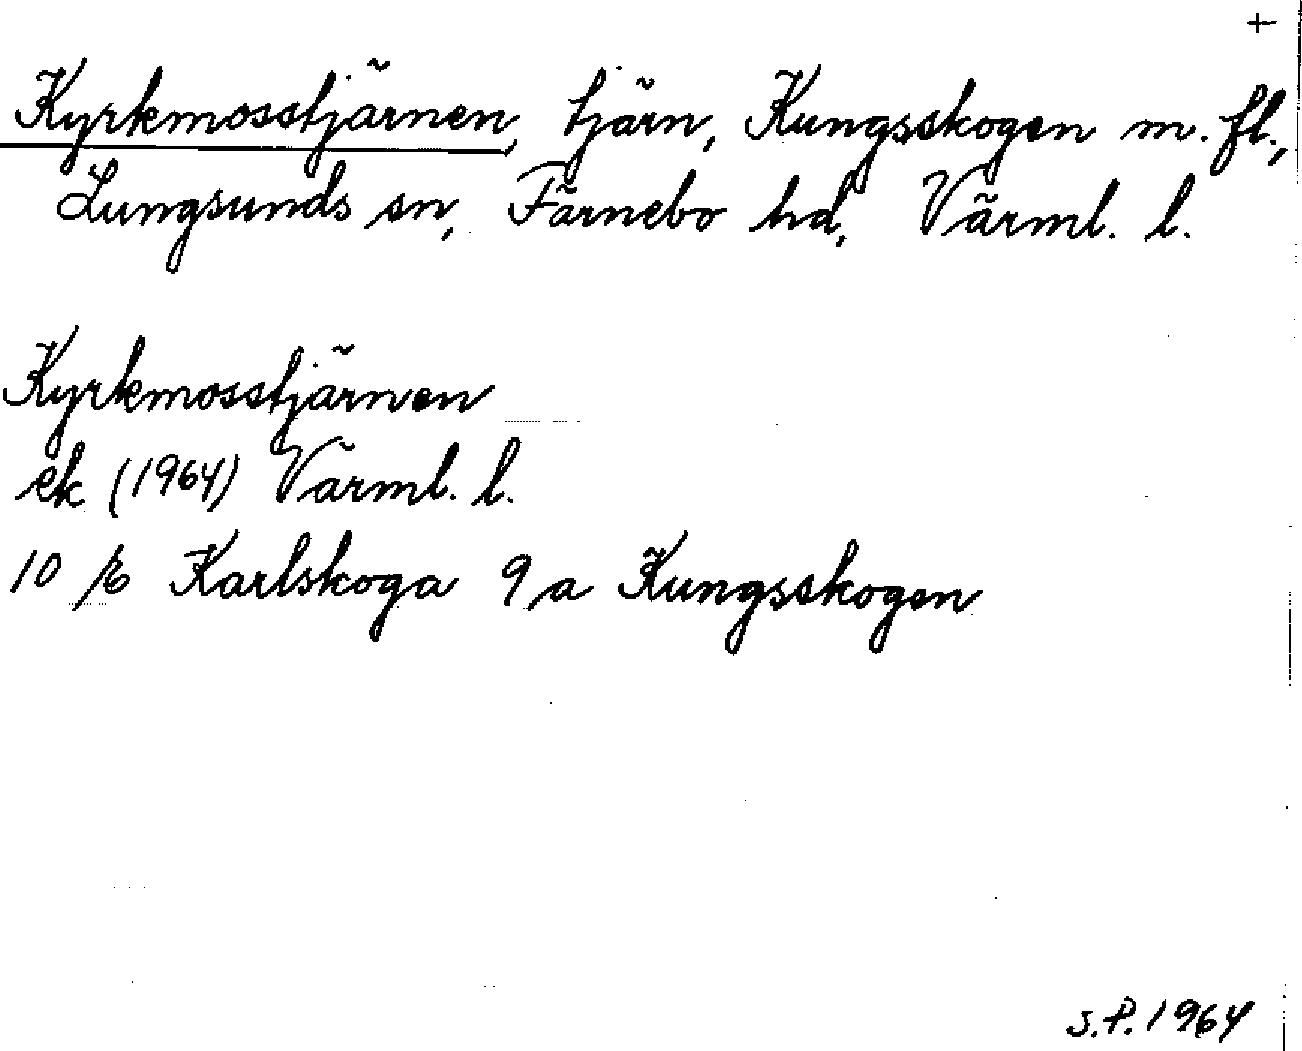 +
Kyrkmosstjärnen, tjärn, Kungsskogen m. fl.,
Lungsunds sn, Färnebo hd, Värml. l.
Kyrkmosstjärnen
ek (1964) Värml. l.
10 E Karlskoga 9 a Kungsskogen
S.P. 1964